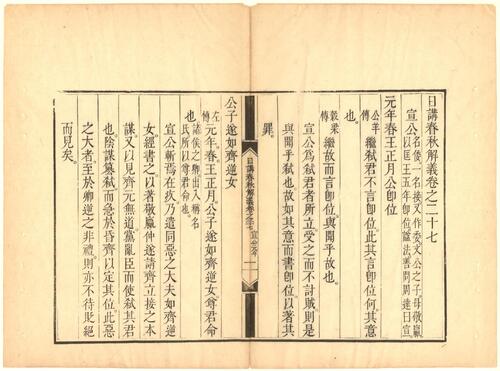 日講春秋解義卷之二十七
宣公名倭一名接又作委文公之子母敬嬴
以匡王五年卽位諡法善問周達曰宣
元年春王正月公卽位
公羊傳繼弒君不言卽位此其言卽位何其意
也
穀梁傳繼故而言卽位與聞乎故也
宣公爲弒君者所立受之而不討賊則是
與聞乎弒也故如其意而書卽位以著其
罪
日講春秋解義 卷之二十七
公子遂如齊逆女
左傳元年春王正月公子遂如齊逆女尊君命
也諸侯之卿出入稱名
氏所以尊君命也
宣公斬焉在疚乃遣同惡之大夫如齊逆
女經書之以著敬嬴仲遂請齊立接之本
謀又以見齊元無道黨亂臣而使弒其君
也陰謀篡弒而急於昏齊以定其位此惡
之大者至於卿逆之非禮則亦不待貶絕
而見矣